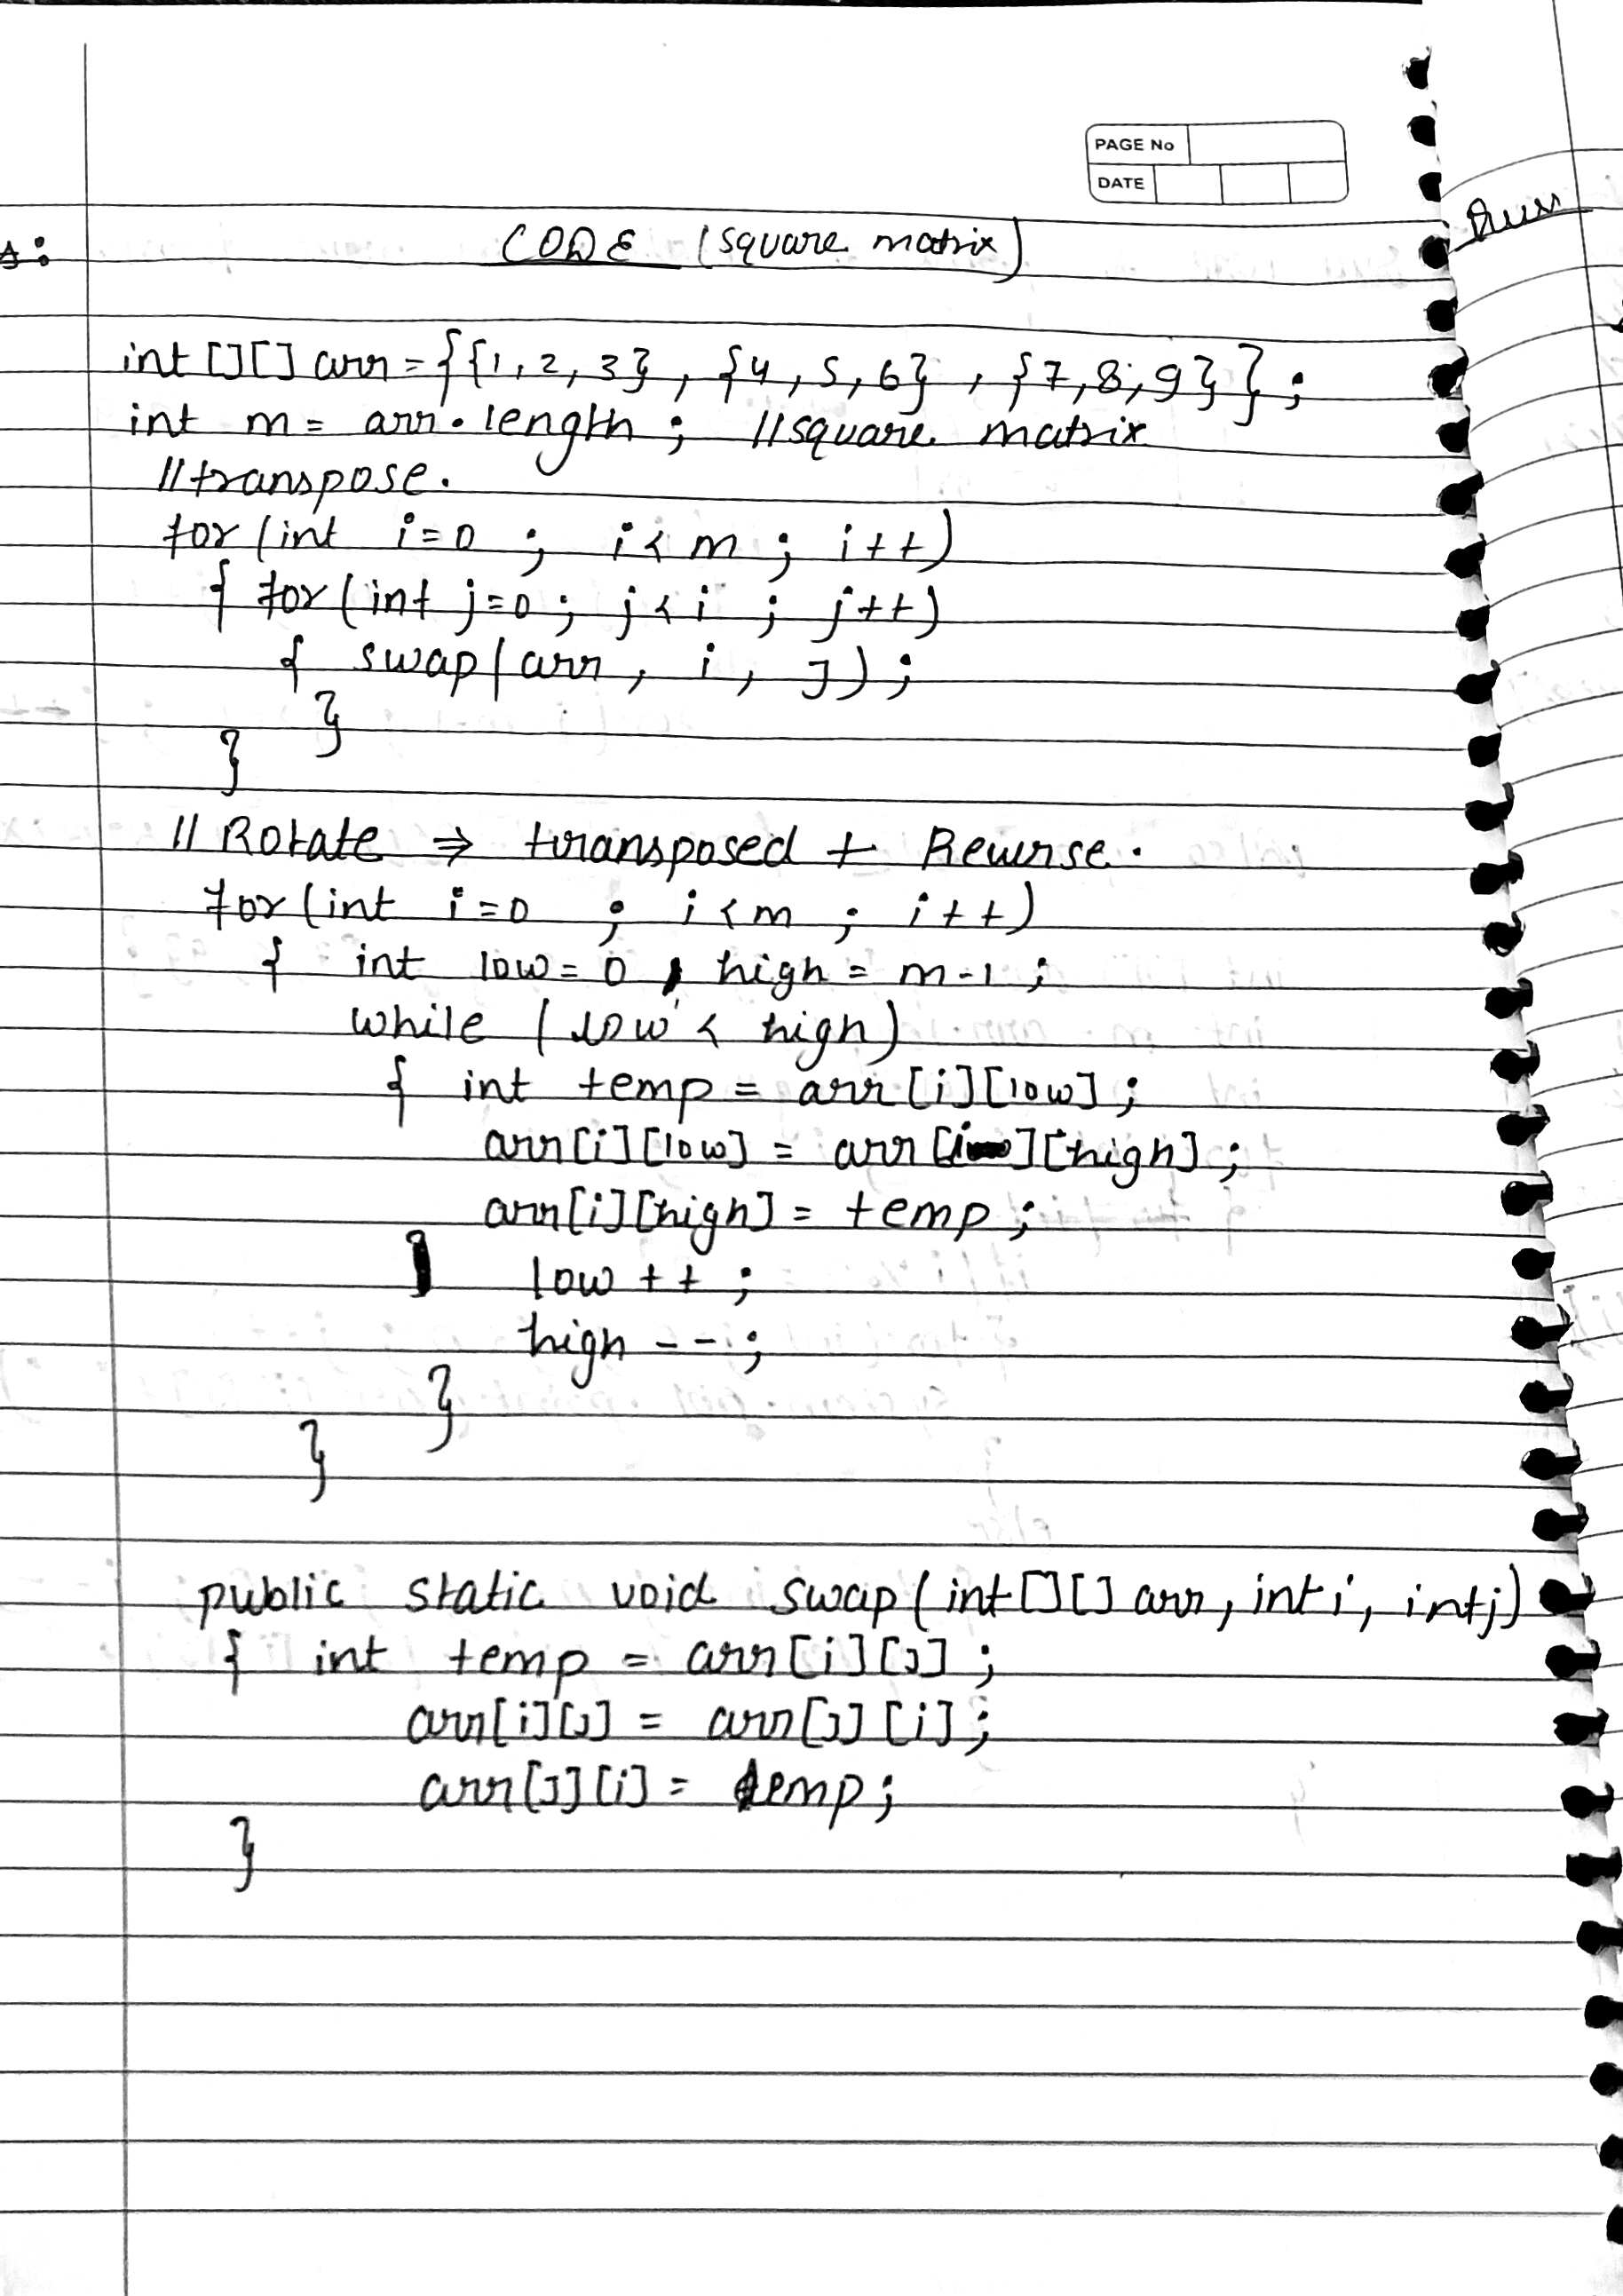 PAGE No
DATE
CODE (square matrix)
int [][] arr = {{1, 2, 3}, {4, 5, 6}, {7, 8, 9}};
int m = arr.length; //square matrix
//transpose.
for (int i=0 ; i < m ; i++)
{ for (int j=0 ; j < i ; j++)
{ swap(arr, i, j);
}
}
// Rotate ⇒ transposed + Reverse.
for (int i=0 ; i < m ; i++)
{ int low = 0, high = m-1 ;
while (low < high)
{ int temp = arr[i][low];
arr[i][low] = arr[i][high];
arr[i][high] = temp;
low ++ ;
high -- ;
}
}
public static void swap(int[][] arr, int i, int j)
{ int temp = arr[i][j];
arr[i][j] = arr[j][i];
arr[j][i] = temp;
}